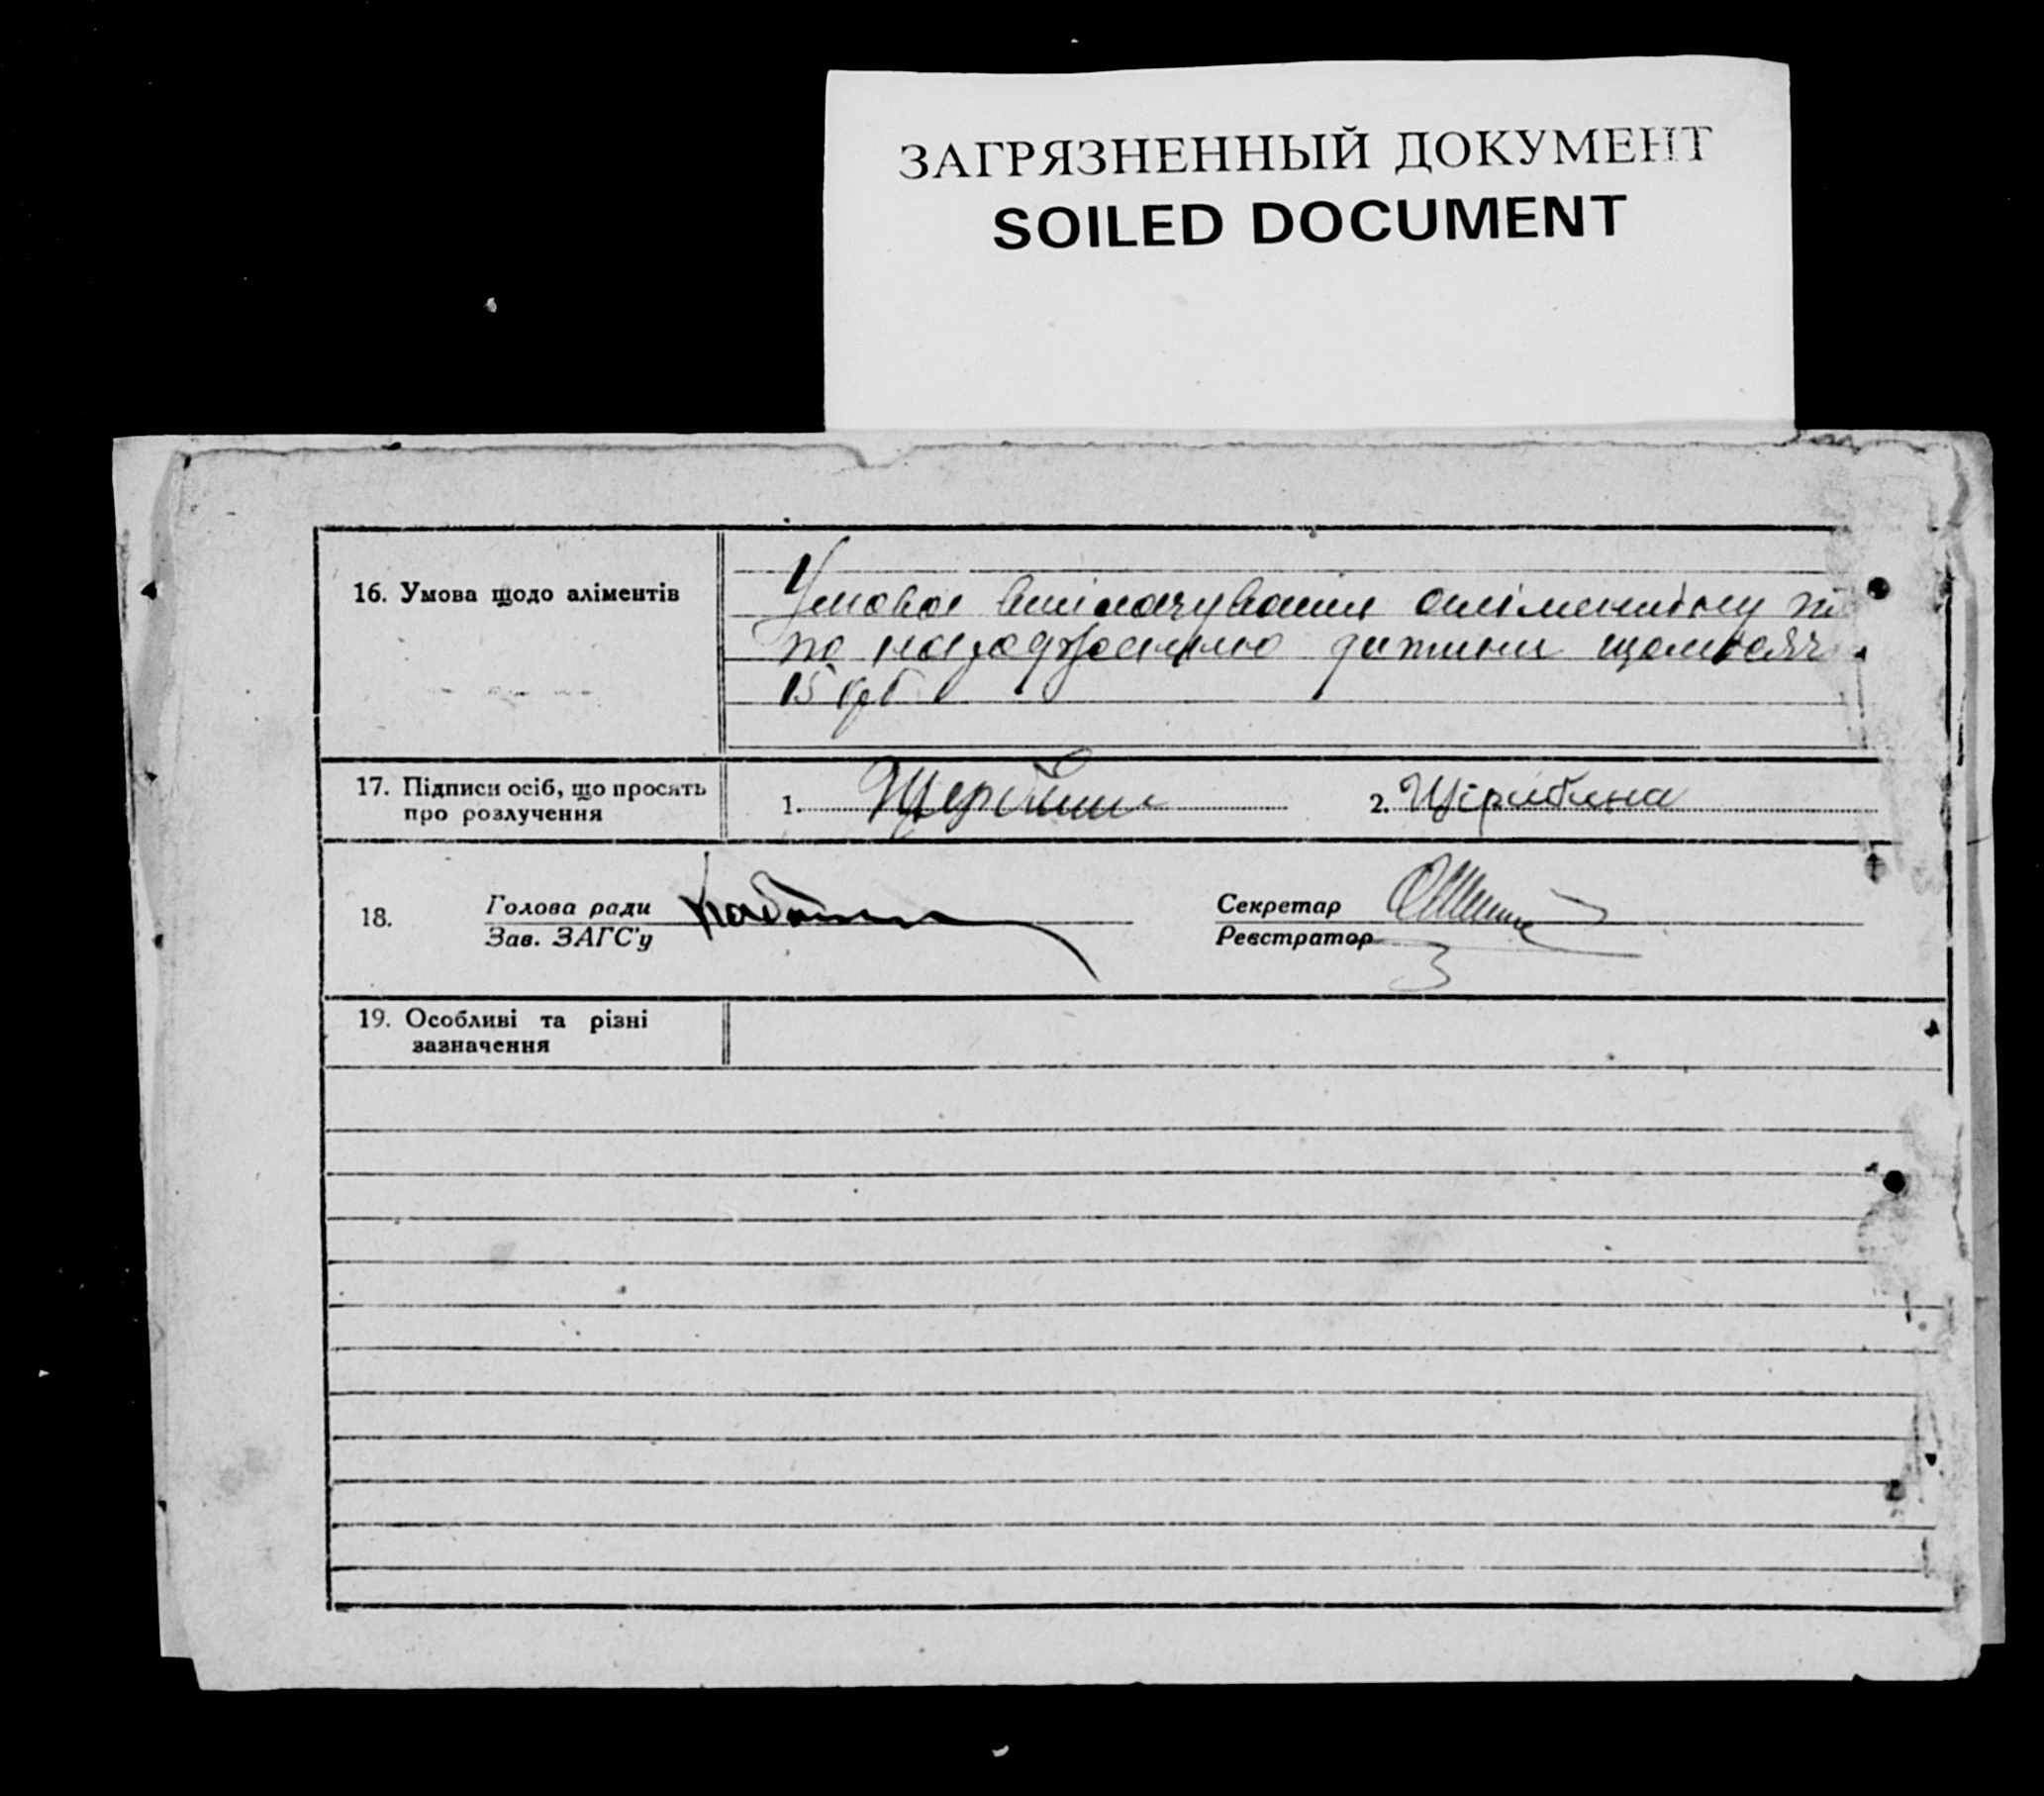 ЗАГРЯЗНЕННЫЙ ДОКУМЕНТ
SOILED DOCUMENT
16. Умова щодо аліментів
Умова виплачування аліментів
по народженню дитини щомісячн
15 крб
17. Підписи осіб, що просять
про розлучення
1.
2. Щірибина
18.
Голова ради
Зав. ЗАГС'у
Секретар
Реєстратор
19. Особливі та різні
зазначення